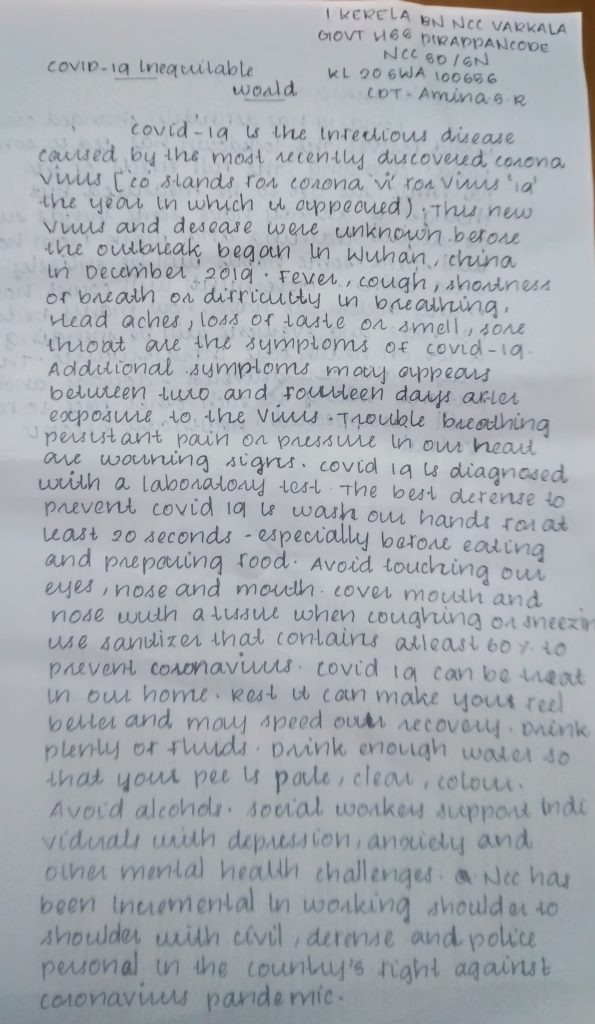 1 KERELA BN NCC VARKALA
GOVT HSS PIRAPPANCODE
NCC SD/SN
KL 20 SWA 100656
CDT- Amina.S.R
COVID-19 Inequitable
world
Covid-19 is the infectious disease
caused by the most recently discovered corona
virus ['co' stands for corona 'vi' for virus '19'
the year in which it appeared). This new
virus and desease were unknown before
the outbreak began in Wuhan, china
in December 2019. Fever, cough, shortness
of breath or difficulty in breathing,
Head aches, loss of taste or smell, sore
throat are the symptoms of covid-19.
Additional symptoms may appears
between two and fourteen days after
exposure to the virus. Trouble breathing
persistant pain or pressure in our heart
are warning signs. covid 19 is diagnosed
with a laboratory test. The best defense to
prevent covid 19 is wash our hands for at
least 20 seconds - especially before eating
and preparing food. Avoid touching our
eyes, nose and mouth. cover mouth and
nose with a tissue when coughing or sneezin
use sandizer that contains atleast 60 % to
prevent coronavirus. covid 19 can be treat
in our home. Rest it can make your feel
better and may speed our recovery. Drink
plenty of fluids. Drink enough water so
that your pee is pale, clear, colour.
Avoid alcohols. social workers support indi
viduals with depression, anxiety and
other mental health challenges. Ncc has
been incremental in working shoulder to
shoulder with civil, defense and police
personal in the country's fight against
coronavirus pandemic.